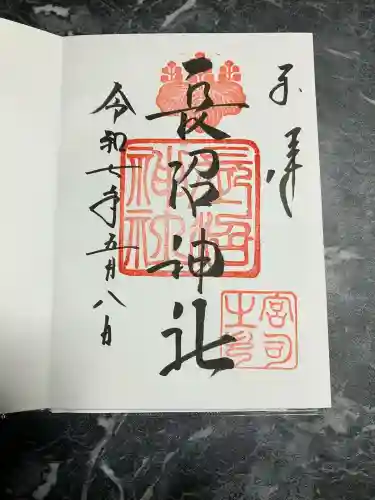 奉拝
長沼神社
令和七年五月八日
長沼神社
宮司之印